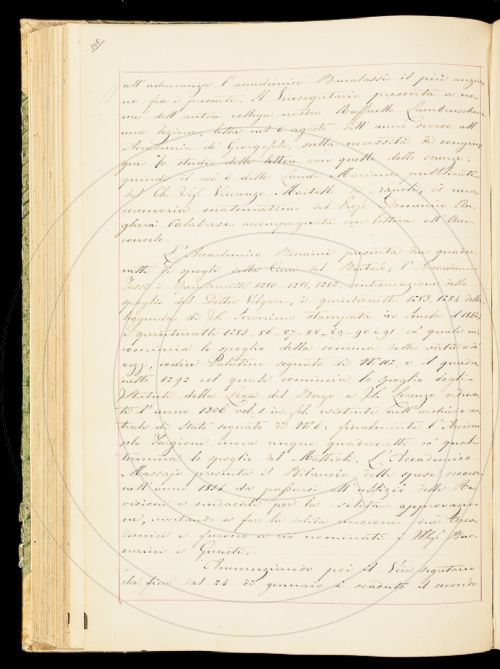 all' adunanza l' accademico Bencalassi il più anzia-
no fra i presenti. Il Vicesegretario presenta a no-
me dell' autore collega nostro Raffaello Lambruschini
una lezione, letta nel 6 agosto dell' anno scorso all'
Accademia de' Georgofili, sulla necessità di congiun-
gere lo studio delle lettere con quello delle scienze;
quindi il vol. 6 delle Laudi Mariane pubblicate
dal Ch. Sig. Vincenzo Martelli di Napoli, ed una
memoria matematica del Prof. Domenico An-
gherà Calabrese accompagnata con lettera all' Arci-
consolo.
L' Accademico Bonaini presenta due quader-
netti di spogli del
i quadernetti 1280-1281, 1282 continuazione dello
spoglio del Dotto Volgare, i quinternetti 1283, 1284 della
leggenda di S. Girolamo stampata in
e quinternetti 1285-86-87-88-89-90 e 91 co' quali in-
comincia lo spoglio della somma delle virtù e de'
vizj, codice Palatino segnato di N° 112, e il quader-
netto 1292 col quale comincia lo spoglio degli
Statuti della Lega del Borgo a S. Lorenzo ordina-
ti l' anno 1306 esistente nell' archivio cen-
trale di Stato segnato di N° 6; finalmente l' Arcicon-
solo Targioni invia cinque quadernetti co' quali
termina lo spoglio del Mattioli. L' Accademico
Massajo presenta il Bilancio delle spese occorse
nell' anno 1856 da passarsi all' ufizio della Re-
visione e sindacati per la solita approvazio-
ne, invitando a far la solita revisione due Acca-
demici e furono a ciò nominati i Sigg.i Bo-
naini e Guasti.
Annunziando poi il Vice segretario
che fino dal 24 di gennaio è scaduto il secondo